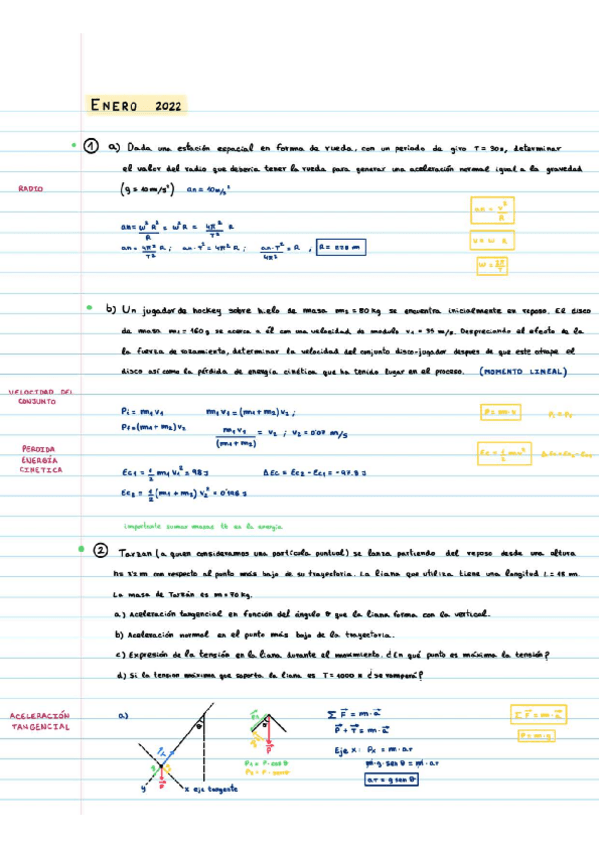 ENERO 2022
1 a) Dada una estación espacial en forma de rueda, con un periodo de giro T = 30s, determinar
el valor del radio que debería tener la rueda para generar una aceleración normal igual a la gravedad
RADIO
(g = 10 m/s²) an = 10 m/s²
an = v²/R
an = ω²R²/R = ω²R = 4π²/T² R
v = ω R
an = 4π²/T² R ; an·T² = 4π² R ; an·T²/4π² = R ,
ω = 2π/T
b) Un jugador de hockey sobre hielo de masa m2 = 80 kg se encuentra inicialmente en reposo. El disco
de masa m1 = 160 g se acerca a él con una velocidad de modulo v1 = 35 m/s. Despreciando el efecto de la
la fuerza de rozamiento, determinar la velocidad del conjunto disco-jugador despues de que este atrape el
disco así como la pérdida de energía cinética que ha tenido lugar en el proceso. (MOMENTO LINEAL)
VELOCIDAD DEL
CONJUNTO
Pi = m1 v1 m1 v1 = (m1 + m2) v2 ;
Pf = (m1 + m2) v2 m1 v1/(m1 + m2) = v2 ; v2 = 0'07 m/s
PERDIDA
ENERGÍA
CINETICA
Ec1 = 1/2 m1 v1² = 98 J ΔEc = Ec2 - Ec1 = -97.8 J
Ec2 = 1/2 (m1 + m2) v2² =
importante sumar masas tb en la energia
2 Tarzan (a quien consideramos una partícula puntual) se lanza partiendo del reposo desde una altura
con respecto al punto más bajo de su trayectoria. La liana que utiliza tiene una longitud L = 18 m.
La masa de Tarzán es m = 70 kg.
a) Aceleración tangencial en función del ángulo θ que la liana forma con la vertical.
b) Aceleración normal en el punto más bajo de la trayectoria.
c) Expresión de la tensión en la liana durante el movimiento. ¿En qué punto es máxima la tensión?
d) Si la tension máxima que soporta la liana es T = 1000 N ¿se romperá?
ACELERACIÓN
TANGENCIAL
a)
Σ F = m·a
P + T = m·a
P = m·g
Eje x: Px = m·aT
m·g·sen θ = m·aT
aT = g sen θ
y
x eje tangente